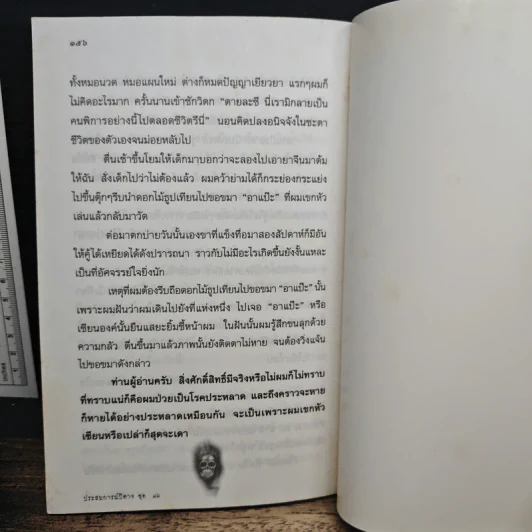 ๑๕๖
ทั้งหมอนวด หมอแผนใหม่ ต่างก็หมดปัญญาเยียวยา แรกๆผมก็
ไม่คิดอะไรมาก ครั้นนานเข้าชักวิตก "ตายละซี นี่เรามิกลายเป็น
คนพิการอย่างนี้ไปตลอดชีวิตรึนี่" นอนคิดปลงอนิจจังในชะตา
ชีวิตของตัวเองจนม่อยหลับไป
ตื่นเช้าขึ้นโยมให้เด็กมาบอกว่าจะลองไปเอายาจีนมาต้ม
ให้ฉัน สั่งเด็กไปว่าไม่ต้องแล้ว ผมคว้าย่ามได้ก็กระย่องกระแย่ง
ไปขึ้นตุ๊กๆรีบนำดอกไม้ธูปเทียนไปขอขมา "อาแป๊ะ" ที่ผมเขกหัว
เล่นแล้วกลับมาวัด
ต่อมาตกบ่ายวันนั้นเองขาที่แข็งทื่อมาสองสัปดาห์ก็มีอัน
ให้คู้ได้เหยียดได้ดังปรารถนา ราวกับไม่มีอะไรเกิดขึ้นยังงั้นแหละ
เป็นที่อัศจรรย์ใจยิ่งนัก
เหตุที่ผมต้องรีบถือดอกไม้ธูปเทียนไปขอขมา "อาแป๊ะ" นั้น
เพราะผมฝันว่าผมเดินไปยังที่แห่งหนึ่ง ไปเจอ "อาแป๊ะ" หรือ
เซียนองค์นั้นยืนแสยะยิ้มชี้หน้าผม ในฝันนั้นผมรู้สึกขนลุกด้วย
ความกลัว ตื่นขึ้นมาแล้วภาพนั้นยังติดตาไม่หาย จนต้องวิ่งแจ้น
ไปขอขมาดังกล่าว
ท่านผู้อ่านครับ สิ่งศักดิ์สิทธิ์มีจริงหรือไม่ผมก็ไม่ทราบ
ที่ทราบแน่ก็คือผมป่วยเป็นโรคประหลาด และถึงคราวจะหาย
ก็หายได้อย่างประหลาดเหมือนกัน จะเป็นเพราะผมเขกหัว
เซียนหรือเปล่าก็สุดจะเดา
ประสบการณ์ปีศาจ ชุด